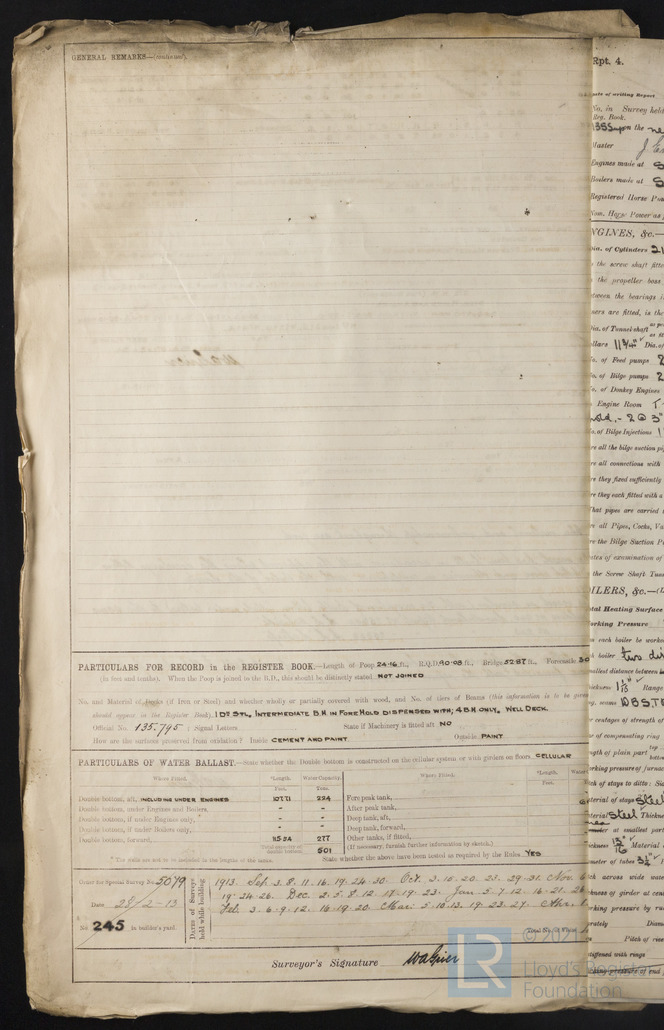 GENERAL REMARKS—(continued).
PARTICULARS FOR RECORD in the REGISTER BOOK.—Length of Poop 24.16 ft., R.Q.D. 90.08 ft., Bridge 52.87 ft., Forecastle
(in feet and tenths). When the Poop is joined to the B.D., this should be distinctly stated NOT JOINED
No. and Material of Decks (if Iron or Steel) and whether wholly or partially covered with wood, and No. of tiers of Beams (this information is to be given
should appear in the Register Book). 1 DK STL, INTERMEDIATE B.H IN FORE HOLD DISPENSED WITH; 4 B.H ONLY. WELL DECK.
Official No. 135.795 ; Signal Letters State if Machinery is fitted aft NO
How are the surfaces preserved from oxidation? Inside CEMENT AND PAINT Outside PAINT
PARTICULARS OF WATER BALLAST.—State whether the Double bottom is constructed on the cellular system or with girders on floors CELLULAR
Where Fitted. *Length. Water Capacity. Where Fitted. *Length. Water
Feet. Tons. Feet.
Double bottom, aft, INCLUDING UNDER ENGINES 107.71 224 Fore peak tank,
Double bottom, under Engines and Boilers, - - After peak tank,
Double bottom, if under Engines only, - - Deep tank, aft,
Double bottom, if under Boilers only, - - Deep tank, forward,
Double bottom, forward, 277 Other tanks, if fitted,
Total capacity of double bottom 501 (If necessary, furnish further information by sketch.)
* The wells are not to be included in the lengths of the tanks. State whether the above have been tested as required by the Rules YES
Order for Special Survey No. 5079
Date 28/2-13
No. 245 in builder's yard.
Dates of Surveys held while building
1913. Sep. 3. 8. 11. 16. 19. 24. 30. Oct. 3. 15. 20. 23. 29. 31. Nov
19. 24. 26. Dec. 2. 5. 8. 12. 17. 19. 23. Jan. 5. 7. 12. 16. 21. 26
Feb. 3. 6. 9. 12. 16. 19. 20. Mar. 5. 10. 13. 19. 23. 27. Apr. 1
Total No. of Visits
Surveyor's Signature
Rpt. 4.
Date of writing Report
No. in Survey held
Reg. Book.
on the
Master
Engines made at
Boilers made at
Registered Horse
Nom. Horse Power as
ENGINES, &c.—
Dia. of Cylinders 21
the screw shaft
the propeller boss
between the bearings
Dia. of Tunnel shaft
11¾"
No. of Feed pumps 2
No. of Bilge pumps 2
No. of Donkey Engines
Engine Room
2 @ 3"
No. of Bilge Injections 1
all the bilge suction
all connections with
they fixed sufficiently
they each fitted with a
What pipes are carried
all Pipes, Cocks,
the Bilge Suction
dates of examination of
the Screw Shaft
BOILERS, &c.—
Total Heating Surface
Working Pressure
each boiler be worked
boiler two
smallest distance between
Range
percentages of strength of
of compensating ring
length of plain part top bottom
working pressure of
pitch of stays to ditto:
material of stays Steel
Steel
at smallest part
Material
meter of tubes 3¼"
across wide water
thickness of girder at
working pressure by
Pitch of
stiffened with rings
© 2021
LR
Lloyd's Register
Foundation